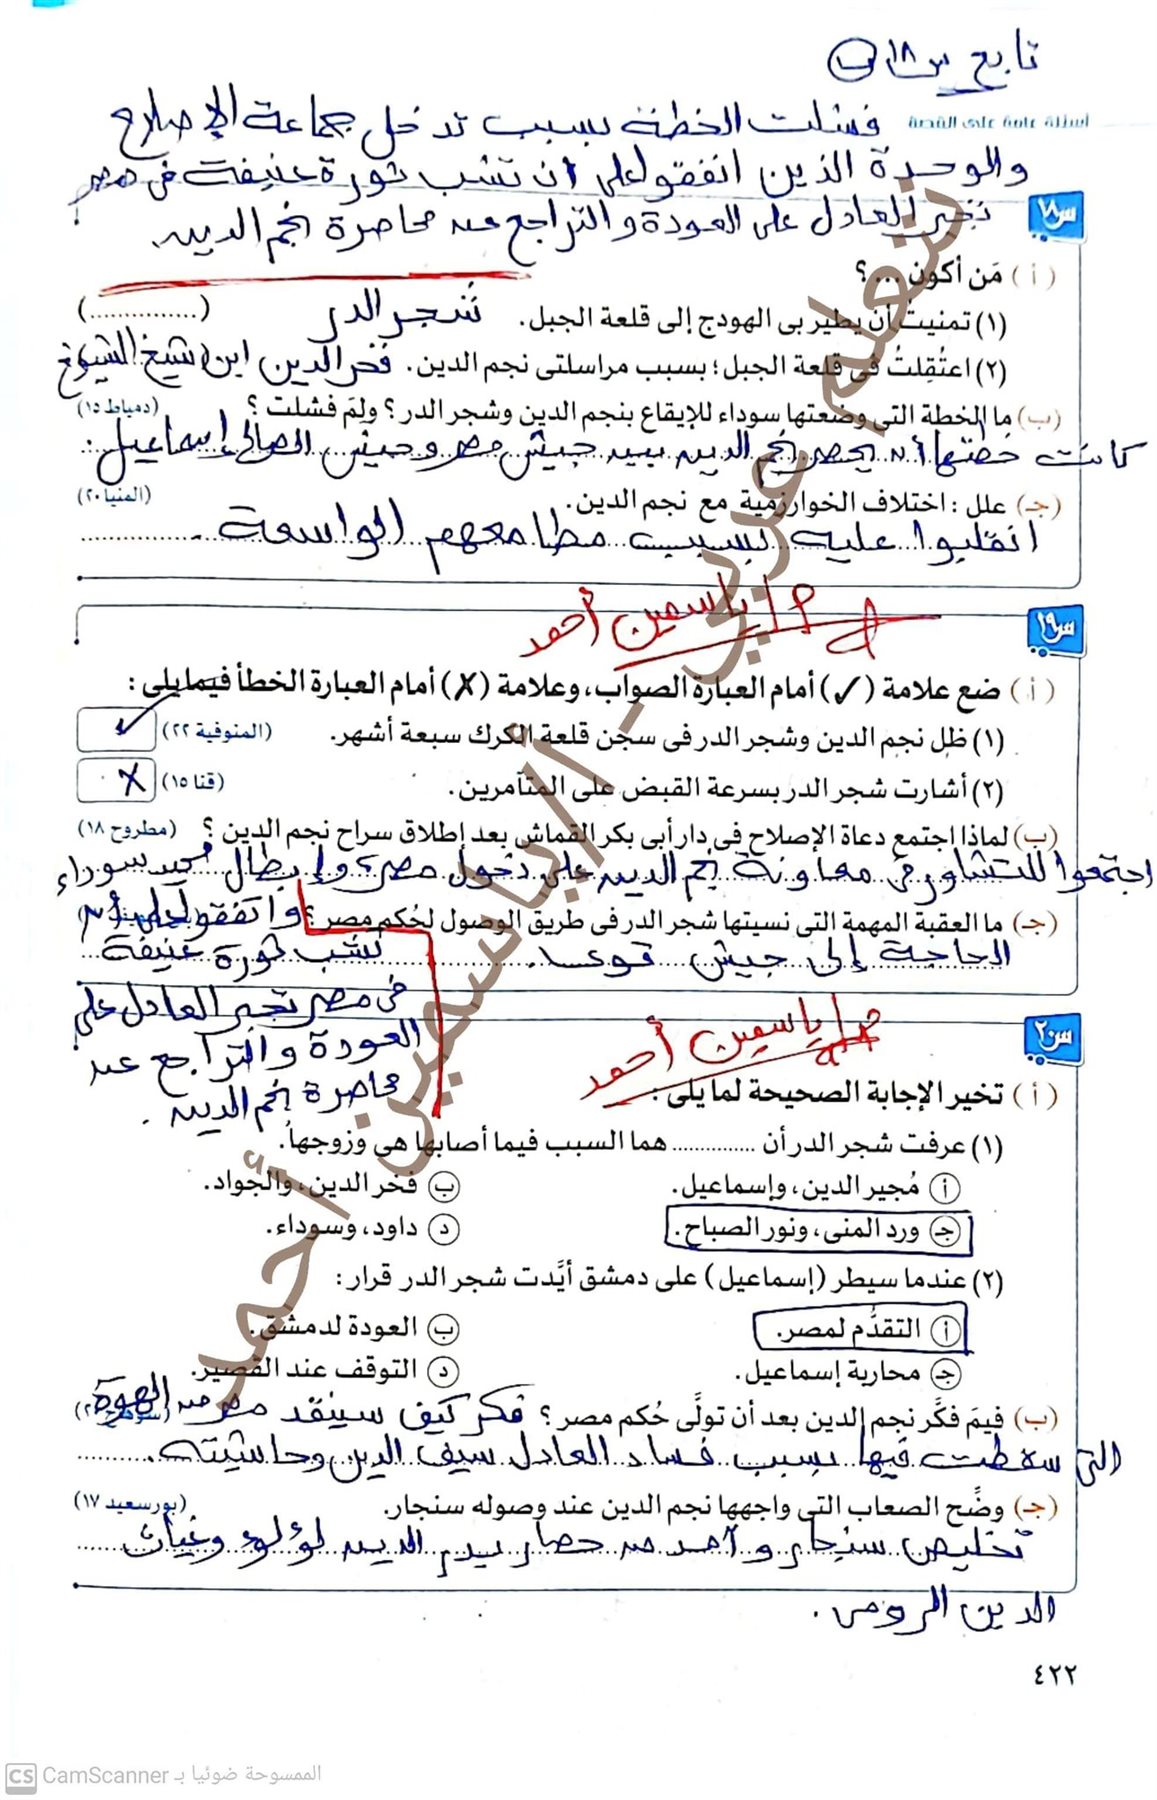 تابع س١٨ ب
أسئلة عامة على القصة
فشلت الخطة بسبب تدخل جماعة الإصلاح
والوحدة الذين اتفقوا على أن تشب ثورة عنيفة في مصر
تجبر العادل على العودة والتراجع عن محاصرة نجم الدين.
س١٨
(أ) مَن أكون ...؟
(١) تمنيت أن يطير بى الهودج إلى قلعة الجبل. شجر الدر (...............)
(٢) اعتُقِلتُ فى قلعة الجبل؛ بسبب مراسلتى نجم الدين. فخر الدين ابن شيخ الشيوخ
(ب) ما الخطة التى وضعتها سوداء للإيقاع بنجم الدين وشجر الدر؟ ولِمَ فشلت؟ (دمياط ١٥)
كانت خطتها أن يحصر نجم الدين بين جيش مصر وجيش الصالح إسماعيل.
(جـ) علل: اختلاف الخوارزمية مع نجم الدين. (المنيا ٢٠)
انقلبوا عليه بسبب مطامعهم الواسعة.
أ/ ياسمين أحمد
س١٩
(أ) ضع علامة (✓) أمام العبارة الصواب، وعلامة (✗) أمام العبارة الخطأ فيما يلى:
(١) ظل نجم الدين وشجر الدر فى سجن قلعة الكرك سبعة أشهر. (المنوفية ٢٢) ✓
(٢) أشارت شجر الدر بسرعة القبض على المتآمرين. (قنا ١٥) ✗
(ب) لماذا اجتمع دعاة الإصلاح فى دار أبى بكر القماش بعد إطلاق سراح نجم الدين؟ (مطروح ١٨)
اجتمعوا للتشاور في معاونة نجم الدين على دخول مصر وإبطال كيد سوداء
(جـ) ما العقبة المهمة التى نسيتها شجر الدر فى طريق الوصول لحُكم مصر؟ واتفقوا على أن
الحاجة إلى جيش قوى. تشب ثورة عنيفة
في مصر تجبر العادل على
العودة والتراجع عن
محاصرة نجم الدين.
أ/ ياسمين أحمد
س٢٠
(أ) تخير الإجابة الصحيحة لما يلى:
(١) عرفت شجر الدر أن ............... هما السبب فيما أصابها هى وزوجها.
أ مُجير الدين، وإسماعيل. ب فخر الدين، والجواد.
جـ ورد المنى، ونور الصباح. د داود، وسوداء.
(٢) عندما سيطر (إسماعيل) على دمشق أيَّدت شجر الدر قرار:
أ التقدُّم لمصر. ب العودة لدمشق.
جـ محاربة إسماعيل. د التوقف عند القصير.
(ب) فيمَ فكَّر نجم الدين بعد أن تولَّى حُكم مصر؟ فكر كيف سينقذ مصر من الهوة
التي سقطت فيها بسبب فساد العادل سيف الدين وحاشيته.
(جـ) وضِّح الصعاب التى واجهها نجم الدين عند وصوله سنجار. (بورسعيد ١٧)
تخليص سنجار وآمد من حصار بدر الدين لؤلؤ وغياث
الدين الرومى.
٤٢٢
نتعلم عربي - أ/ ياسمين أحمد
CS CamScanner الممسوحة ضوئيا بـ